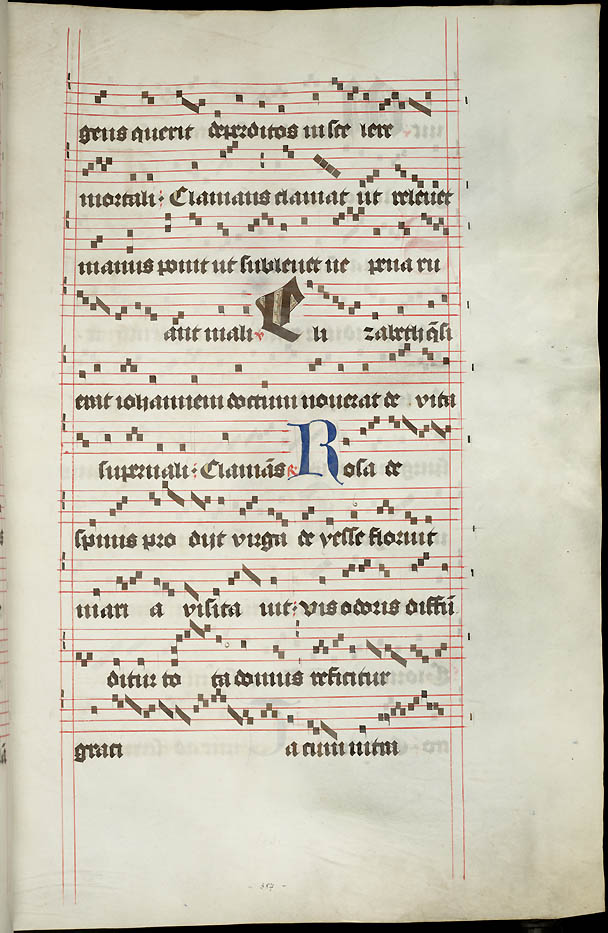 gens querit deperditos in sce lere
mortali: Clamans clamat ut releuet
manus ponit ut subleuet ne prua ru
ant mali v Eli zabeth q̄si
emit iohannem doctum nouerat de vita
supernali: Clamās R Rosa de
spinis pro dijt virga de yesse floruit
mari a visita uit: vis odoris diffū
ditur to ta domus reficitur
graci a cum uitui
357